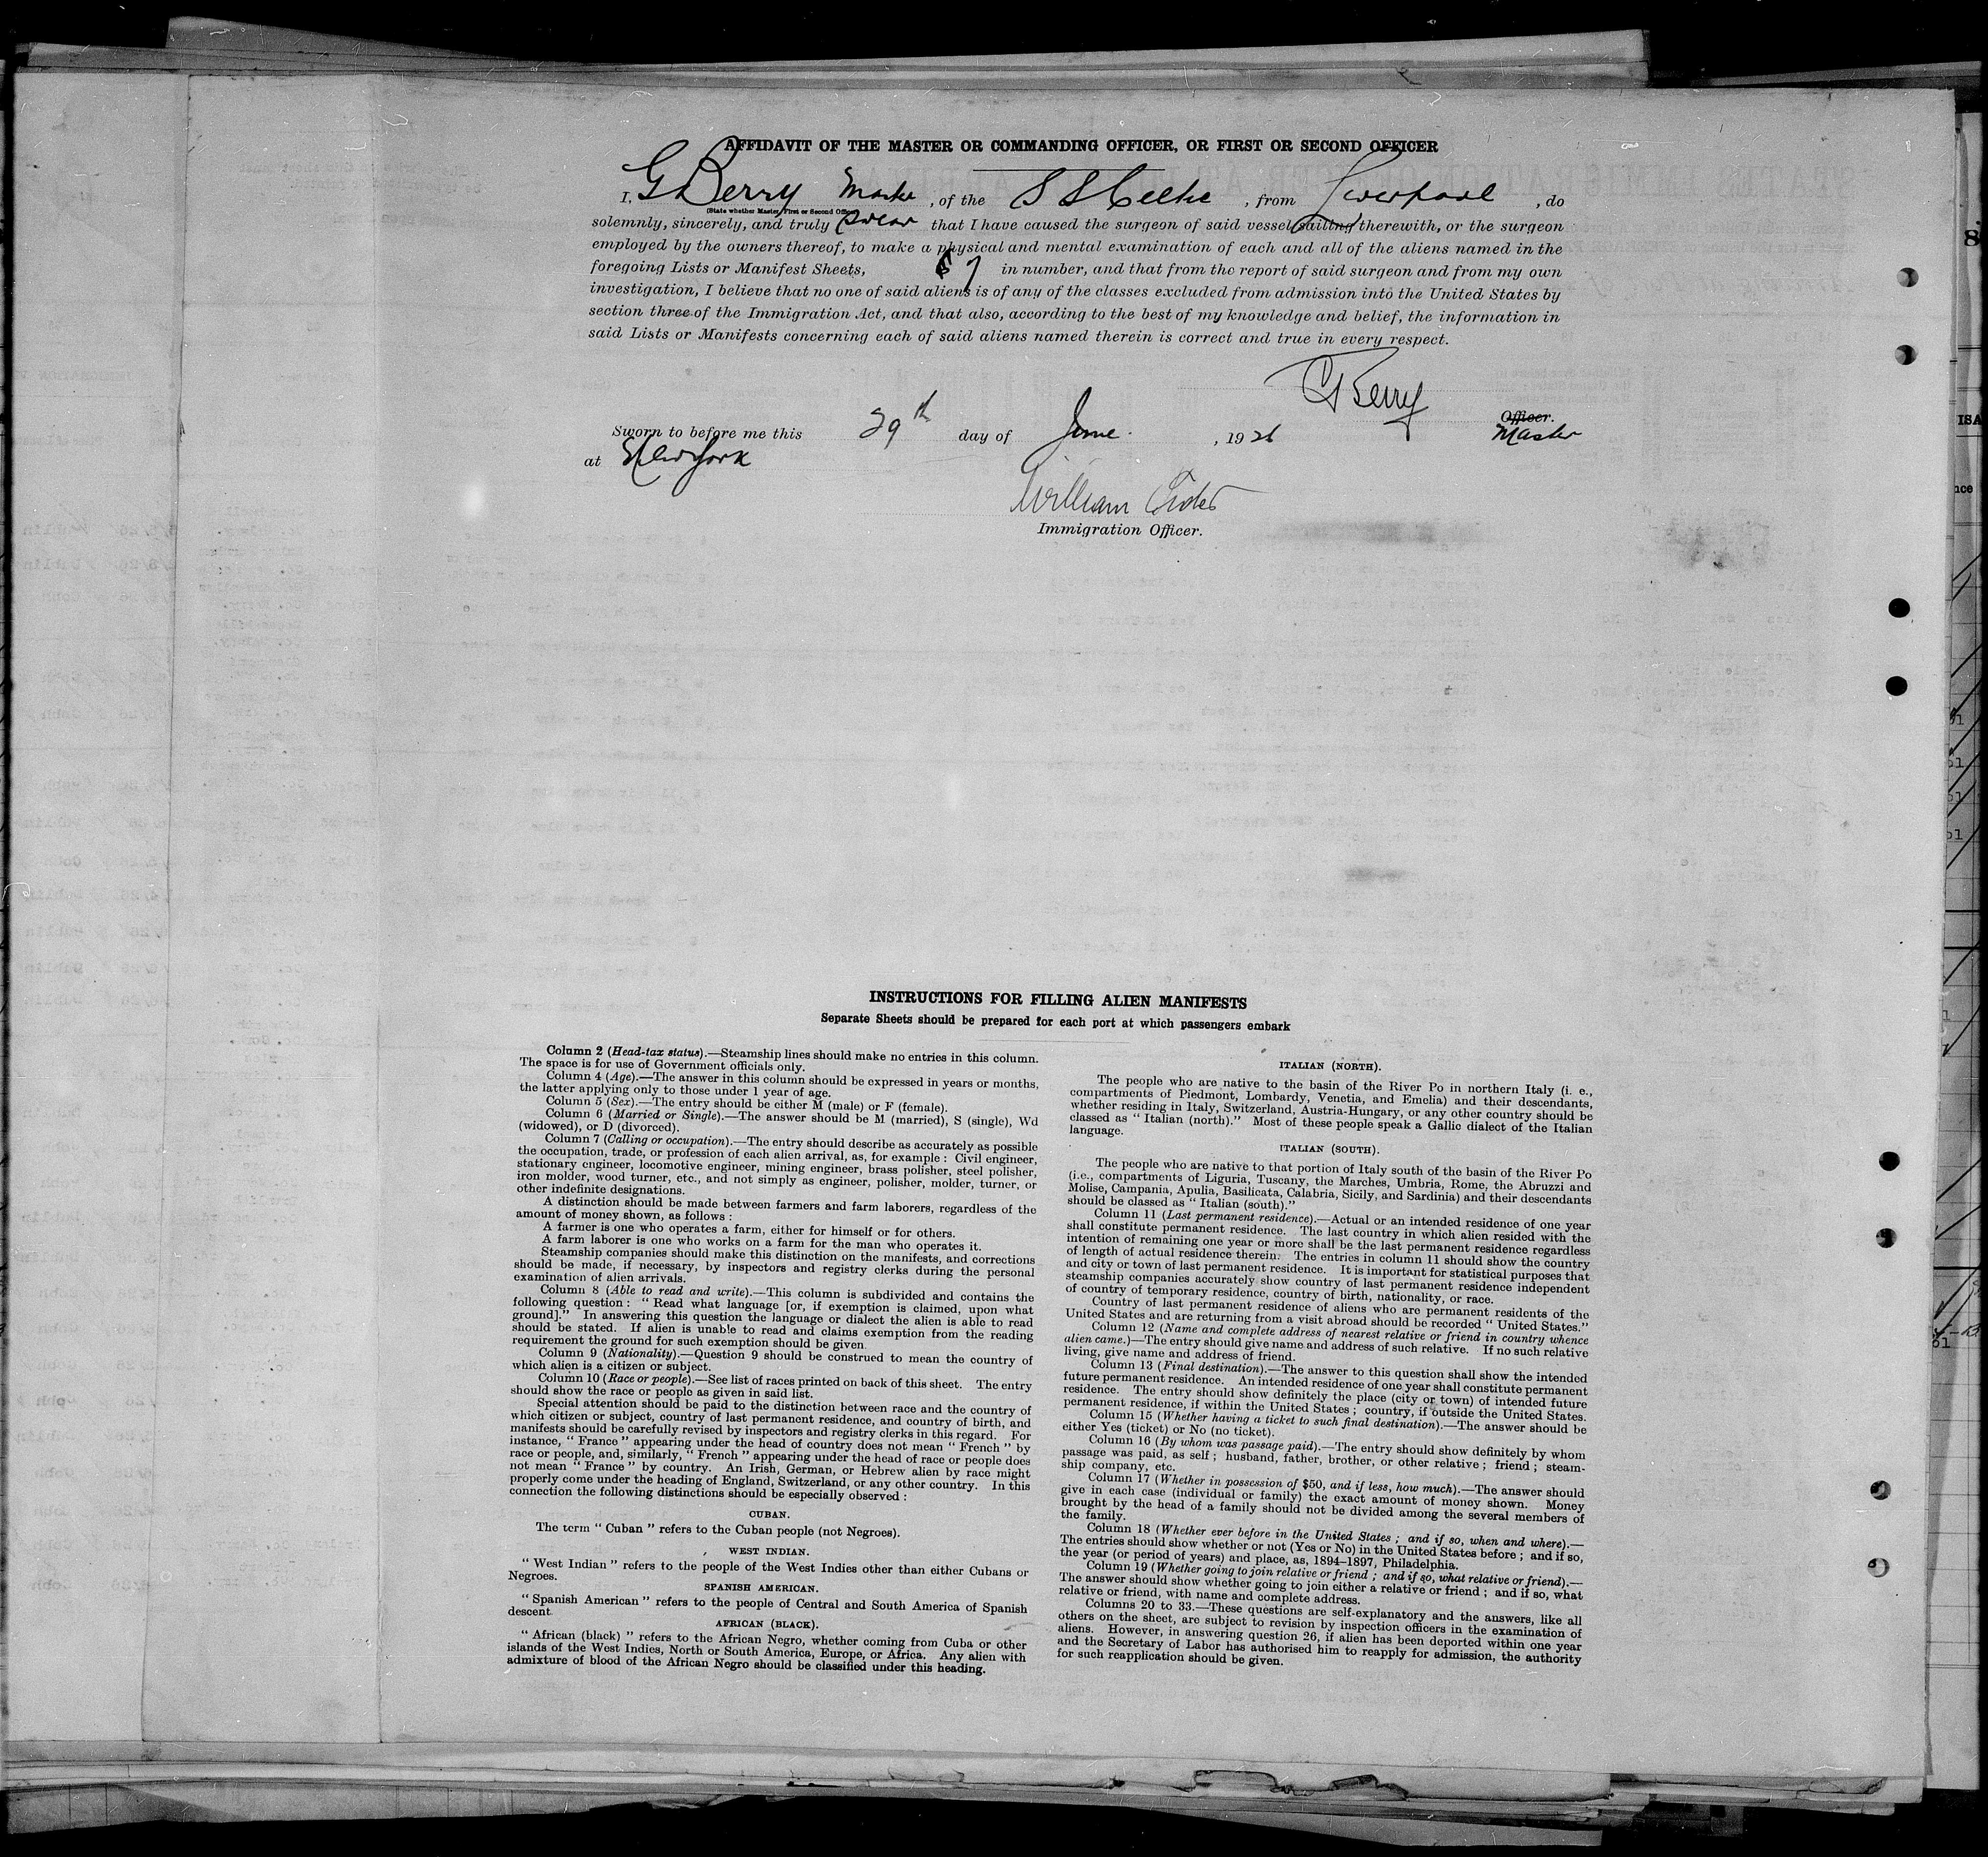 AFFIDAVIT OF THE MASTER OR COMMANDING OFFICER, OR FIRST OR SECOND OFFICER
I, G Berry Master, of the S S Celtic, from Liverpool, do
(State whether Master, First or Second Officer)
solemnly, sincerely, and truly swear that I have caused the surgeon of said vessel sailing therewith, or the surgeon
employed by the owners thereof, to make a physical and mental examination of each and all of the aliens named in the
foregoing Lists or Manifest Sheets, in number, and that from the report of said surgeon and from my own
investigation, I believe that no one of said aliens is of any of the classes excluded from admission into the United States by
section three of the Immigration Act, and that also, according to the best of my knowledge and belief, the information in
said Lists or Manifests concerning each of said aliens named therein is correct and true in every respect.
G Berry
Officer.
Sworn to before me this 29th day of June, 1926 Master
at New York
William
Immigration Officer.
INSTRUCTIONS FOR FILLING ALIEN MANIFESTS
Separate Sheets should be prepared for each port at which passengers embark
Column 2 (Head-tax status).—Steamship lines should make no entries in this column.
The space is for use of Government officials only.
Column 4 (Age).—The answer in this column should be expressed in years or months,
the latter applying only to those under 1 year of age.
Column 5 (Sex).—The entry should be either M (male) or F (female).
Column 6 (Married or Single).—The answer should be M (married), S (single), Wd
(widowed), or D (divorced).
Column 7 (Calling or occupation).—The entry should describe as accurately as possible
the occupation, trade, or profession of each alien arrival, as, for example : Civil engineer,
stationary engineer, locomotive engineer, mining engineer, brass polisher, steel polisher,
iron molder, wood turner, etc., and not simply as engineer, polisher, molder, turner, or
other indefinite designations.
A distinction should be made between farmers and farm laborers, regardless of the
amount of money shown, as follows :
A farmer is one who operates a farm, either for himself or for others.
A farm laborer is one who works on a farm for the man who operates it.
Steamship companies should make this distinction on the manifests, and corrections
should be made, if necessary, by inspectors and registry clerks during the personal
examination of alien arrivals.
Column 8 (Able to read and write).—This column is subdivided and contains the
following question : " Read what language [or, if exemption is claimed, upon what
ground]." In answering this question the language or dialect the alien is able to read
should be stated. If alien is unable to read and claims exemption from the reading
requirement the ground for such exemption should be given.
Column 9 (Nationality).—Question 9 should be construed to mean the country of
which alien is a citizen or subject.
Column 10 (Race or people).—See list of races printed on back of this sheet. The entry
should show the race or people as given in said list.
Special attention should be paid to the distinction between race and the country of
which citizen or subject, country of last permanent residence, and country of birth, and
manifests should be carefully revised by inspectors and registry clerks in this regard. For
instance, " France " appearing under the head of country does not mean " French " by
race or people, and, similarly, " French " appearing under the head of race or people does
not mean " France " by country. An Irish, German, or Hebrew alien by race might
properly come under the heading of England, Switzerland, or any other country. In this
connection the following distinctions should be especially observed :
CUBAN.
The term " Cuban " refers to the Cuban people (not Negroes).
WEST INDIAN.
" West Indian " refers to the people of the West Indies other than either Cubans or
Negroes.
SPANISH AMERICAN.
" Spanish American " refers to the people of Central and South America of Spanish
descent.
AFRICAN (BLACK).
" African (black) " refers to the African Negro, whether coming from Cuba or other
islands of the West Indies, North or South America, Europe, or Africa. Any alien with
admixture of blood of the African Negro should be classified under this heading.
ITALIAN (NORTH).
The people who are native to the basin of the River Po in northern Italy (i. e.,
compartments of Piedmont, Lombardy, Venetia, and Emelia) and their descendants,
whether residing in Italy, Switzerland, Austria-Hungary, or any other country should be
classed as " Italian (north)." Most of these people speak a Gallic dialect of the Italian
language.
ITALIAN (SOUTH).
The people who are native to that portion of Italy south of the basin of the River Po
(i.e., compartments of Liguria, Tuscany, the Marches, Umbria, Rome, the Abruzzi and
Molise, Campania, Apulia, Basilicata, Calabria, Sicily, and Sardinia) and their descendants
should be classed as " Italian (south)."
Column 11 (Last permanent residence).—Actual or an intended residence of one year
shall constitute permanent residence. The last country in which alien resided with the
intention of remaining one year or more shall be the last permanent residence regardless
of length of actual residence therein. The entries in column 11 should show the country
and city or town of last permanent residence. It is important for statistical purposes that
steamship companies accurately show country of last permanent residence independent
of country of temporary residence, country of birth, nationality, or race.
Country of last permanent residence of aliens who are permanent residents of the
United States and are returning from a visit abroad should be recorded " United States."
Column 12 (Name and complete address of nearest relative or friend in country whence
alien came.)—The entry should give name and address of such relative. If no such relative
living, give name and address of friend.
Column 13 (Final destination).—The answer to this question shall show the intended
future permanent residence. An intended residence of one year shall constitute permanent
residence. The entry should show definitely the place (city or town) of intended future
permanent residence, if within the United States ; country, if outside the United States.
Column 15 (Whether having a ticket to such final destination).—The answer should be
either Yes (ticket) or No (no ticket).
Column 16 (By whom was passage paid).—The entry should show definitely by whom
passage was paid, as self ; husband, father, brother, or other relative ; friend ; steam-
ship company, etc.
Column 17 (Whether in possession of $50, and if less, how much).—The answer should
give in each case (individual or family) the exact amount of money shown. Money
brought by the head of a family should not be divided among the several members of
the family.
Column 18 (Whether ever before in the United States ; and if so, when and where).—
The entries should show whether or not (Yes or No) in the United States before ; and if so,
the year (or period of years) and place, as, 1894–1897, Philadelphia.
Column 19 (Whether going to join relative or friend ; and if so, what relative or friend).—
The answer should show whether going to join either a relative or friend ; and if so, what
relative or friend, with name and complete address.
Columns 20 to 33.—These questions are self-explanatory and the answers, like all
others on the sheet, are subject to revision by inspection officers in the examination of
aliens. However, in answering question 26, if alien has been deported within one year
and the Secretary of Labor has authorised him to reapply for admission, the authority
for such reapplication should be given.